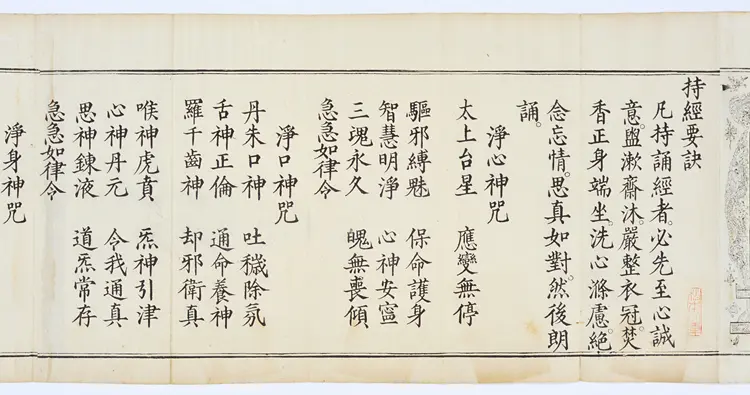 持經要訣
凡持誦經者。必先至心誠
意盥漱齋沐嚴整衣冠。焚
香正身端坐。洗心滌慮。絕
念忘情。思真如對。然後朗
誦。
淨心神咒
太上台星 應變無停
驅邪縛魅 保命護身
智慧明淨 心神安寧
三魂永久 魄無喪傾
急急如律令
淨口神咒
丹朱口神 吐穢除氛
舌神正倫 通命養神
羅千齒神 却邪衛真
喉神虎賁 炁神引津
心神丹元 令我通真
思神鍊液 道炁常存
急急如律令
淨身神咒